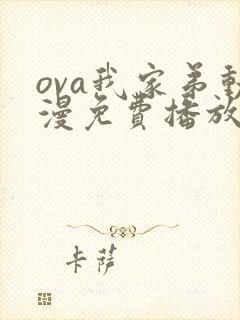 ova我家弟動
漫免費播放
卡薩